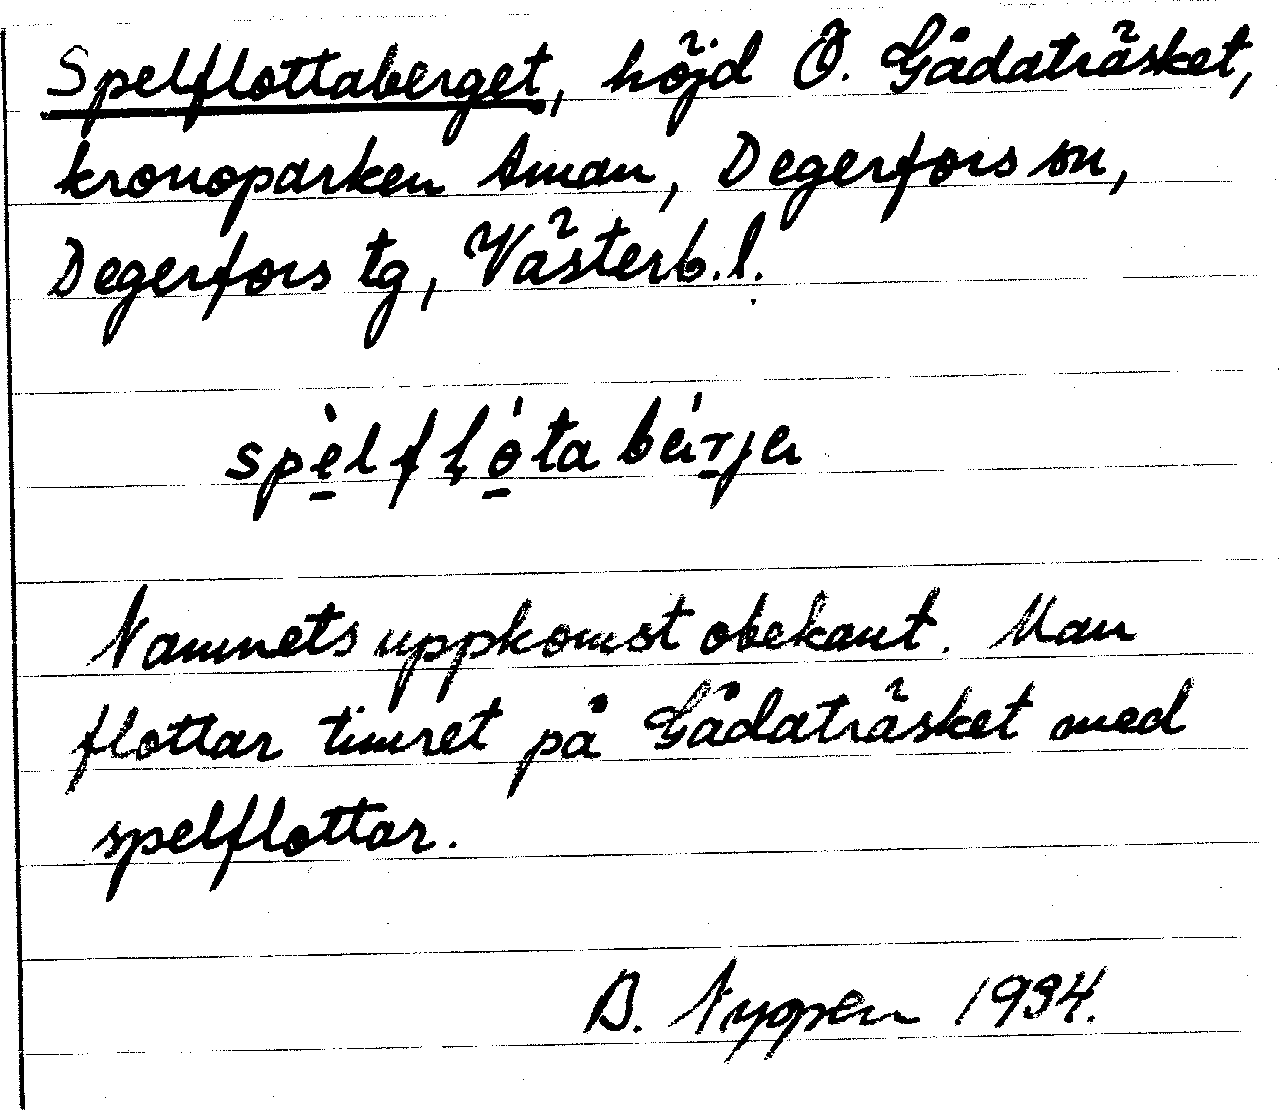 Spelflottaberget, höjd Ö. Gådaträsket,
kronoparken Åman, Degerfors sn,
Degerfors tg, Västerb. l.
spèlflóta bärje
Namnets uppkomst obekant. Man
flottar timret på Gådaträsket med
spelflottar.
B. Nygren 1934.